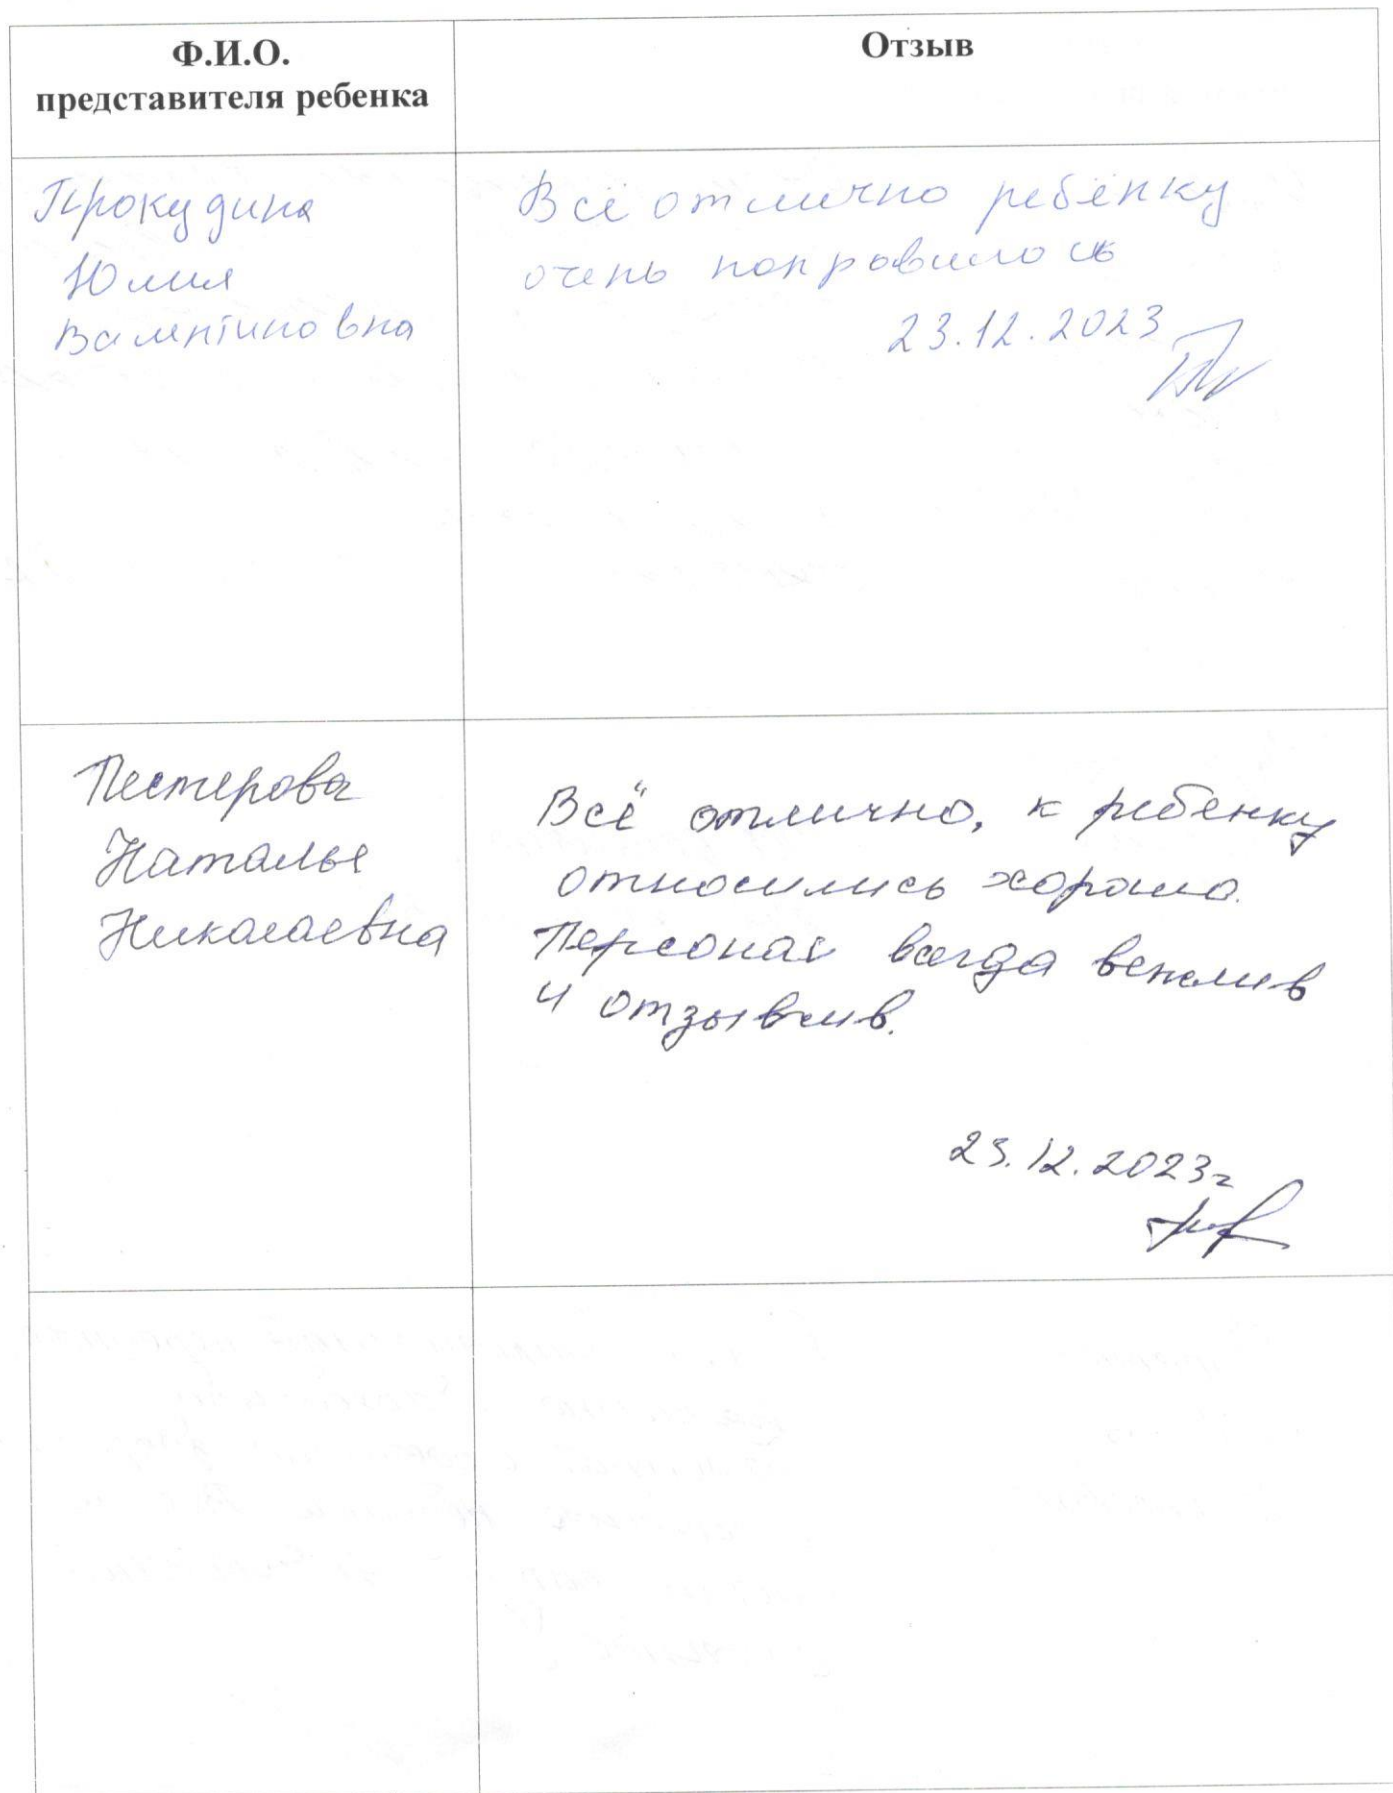 Ф.И.О.
представителя ребенка
Отзыв
Прокудина
Юлия
Валентиновна
Всё отлично ребёнку
очень понравилось
23.12.2023
Пестерова
Наталья
Николаевна
Всё отлично, к ребенку
относились хорошо.
Персонал всегда вежлив
и отзывчив.
23.12.2023г